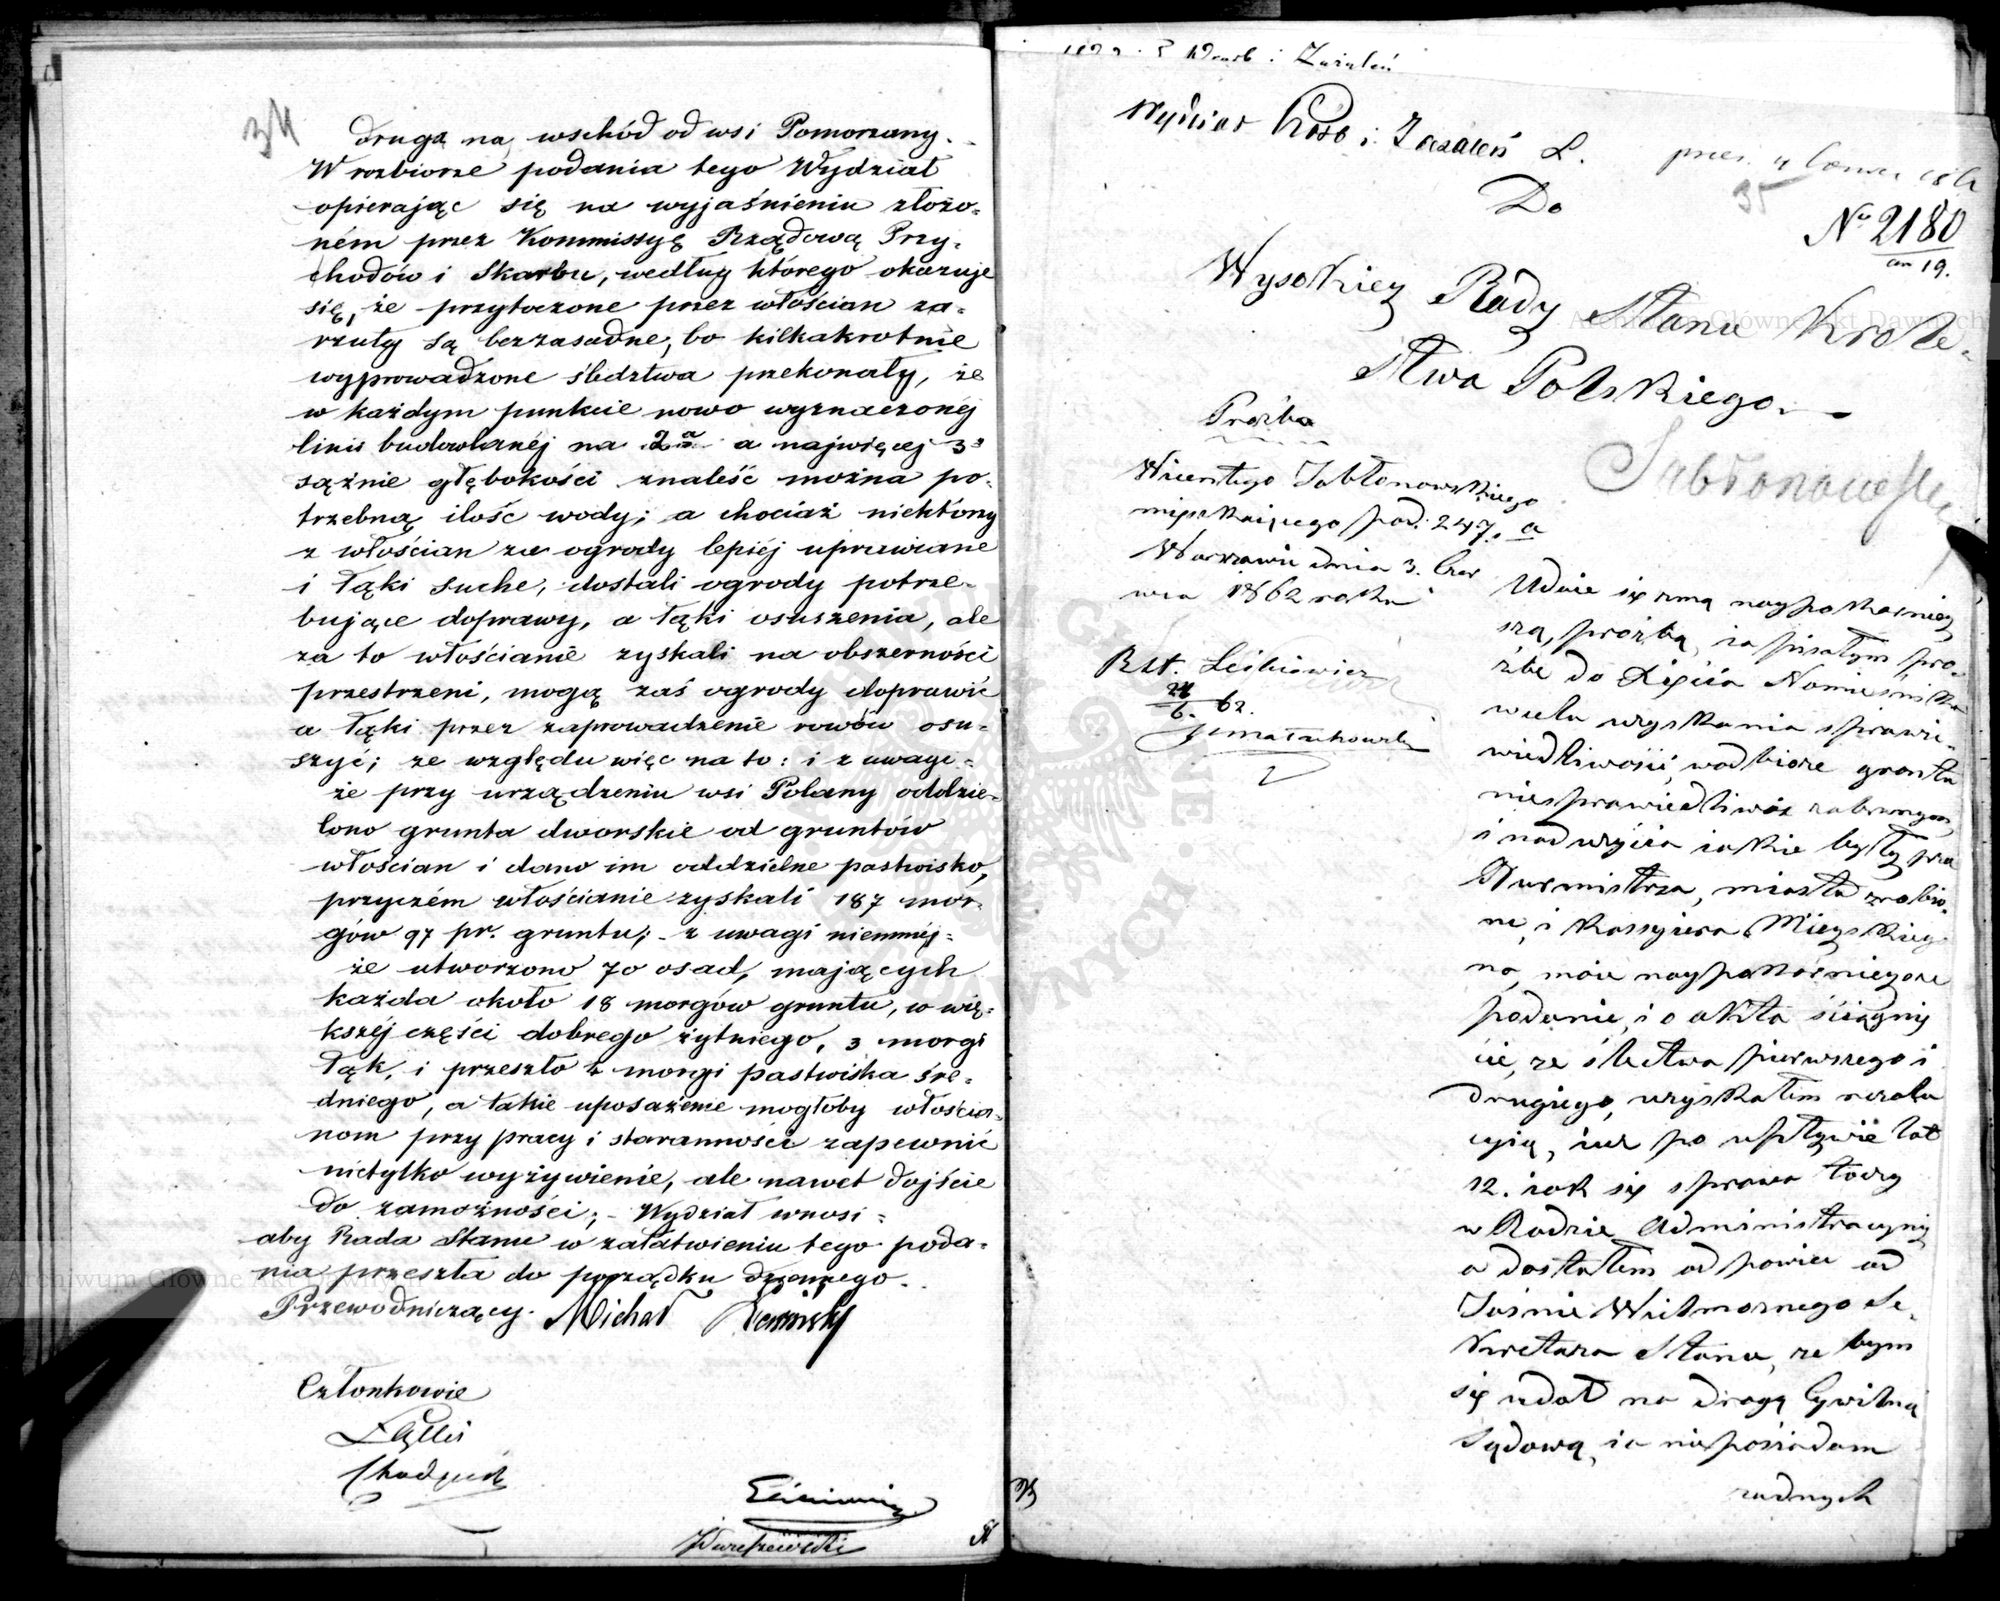 34
druga na wschód od wsi Pomorzany.
W rozbiorze podania tego Wydział
opierając się na wyjaśnieniu złożo=
ném przez Kommissyę Rządową Przy=
chodów i Skarbu, według którego okazuje
się, że przytoczone przez włościan za=
rzuty są bezzasadne, bo kilkakrotnie
wyprowadzone śledztwa przekonały, że
w każdym punkcie nowo wyznaczonéj
linii budowlanéj na 2a a najwięcej 3s
sążnie głębokości znaleść można po=
trzebną ilość wody; a chociaż niektórzy
z włościan za ogrody lepiéj uprawiane
i łąki suche, dostali ogrody potrze=
bujące doprawy, a łąki osuszenia, ale
za to włościanie zyskali na obszerności
przestrzeni, mogą zaś ogrody doprawić
a łąki przez zaprowadzenie rowów osu=
szyć; ze względu więc na to: i z uwagi=
że przy urządzeniu wsi Polany oddzie=
lono grunta dworskie od gruntów
włościan i dano im oddzielne pastwisko,
przyczém włościanie zyskali 187 mor=
gów 97 pr. gruntu; - z uwagi niemniéj=
że utworzono 70 osad, mających
każda około 18 morgów gruntu, w wię=
kszéj części dobrego żytniego, 3 morgi
łąk, i przeszło 2 morgi pastwiska śre=
dniego, a takie uposażenie mogłoby włościa=
nom przy pracy i staranności zapewnić
nietylko wyżywienie, ale nawet dojście
do zamożności; - Wydział wnosi=
aby Rada Stanu w załatwieniu tego poda=
nia przeszła do porządku dziennego.
Przewodniczący. Michał
Członkowie
Wydział Prośb i Zażaleń L.
35
Do
No 2180
19.
Wysokiey Rady Stanu Króle=
stwa Polskiego.
Prożba
Wicentego Jabłonowskiego
mięszkaiącego pod: 247. a
Warszawie dnia 3. Czer
wca 1862 roku
Jabłonowski
Rzt. Leśkiewicz
24
6. 62.
Udaie się zmą naypokornieg
szą, prożbą, ia pisałym pro=
żbe do Xięcia Namiestnika
wcelu uzyskania sprawie=
dliwości, wodbiorze gruntu
niesprawiedliwie zabranego,
i nadużycia iakie były prze
Burmistrza, miasta zrobio=
ne, i Kassyiera Mieyskieg
na, moie naypokornieyszze
podanie, i o akta ściągnię
cie, ze śledtwa pierwszego i
drugiego, uzyskałem rezolu
cyią, iuż po upływie lat
12. iak się sprawa toczy
w Radzie Administracyiny
a dostałem odpowiec od
Jaśnie Wielmożnego Se=
kretarza Stanu, że bym
się udał na drogę Cywilną
Sądową, ia nieposiadam
żadnych
Archiwum Główne Akt Dawnych